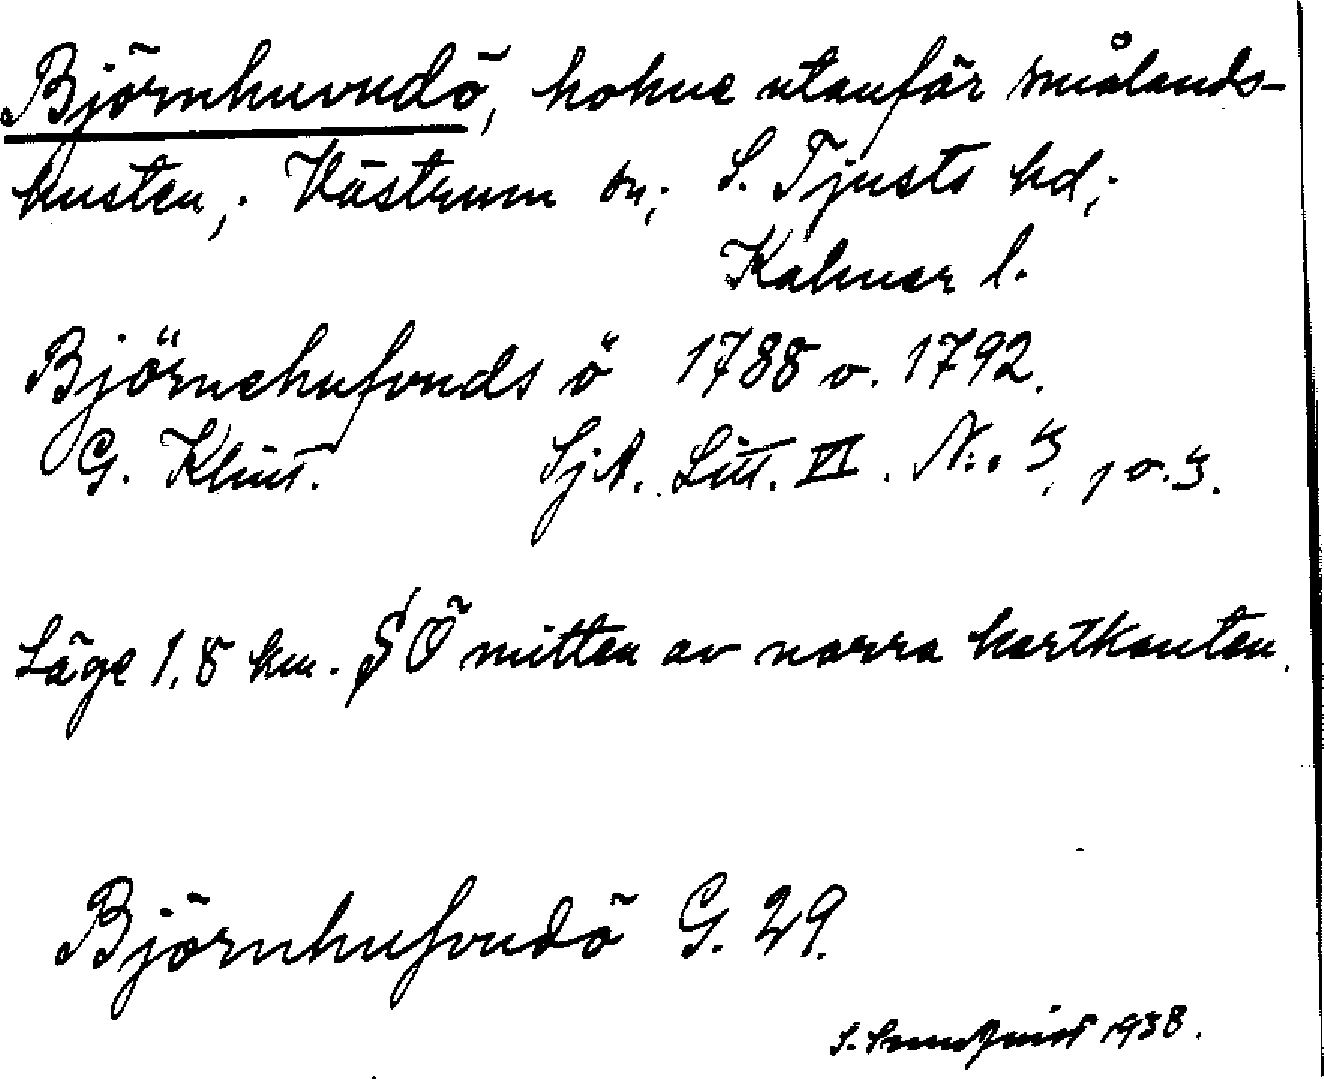 Björnhuvudö, holme utanför smålands-
kusten,; Västrum sn; S. Tjusts hd;
Kalmar l.
Björnehufvuds ö 1788 o. 1792.
G. Klint. SjK. Litt. VI. N:o 3, 
Läge 1,8 km. SÖ mitten av norra kartkanten.
Björnhufvudö G. 29.
S. Sundquist 1938.